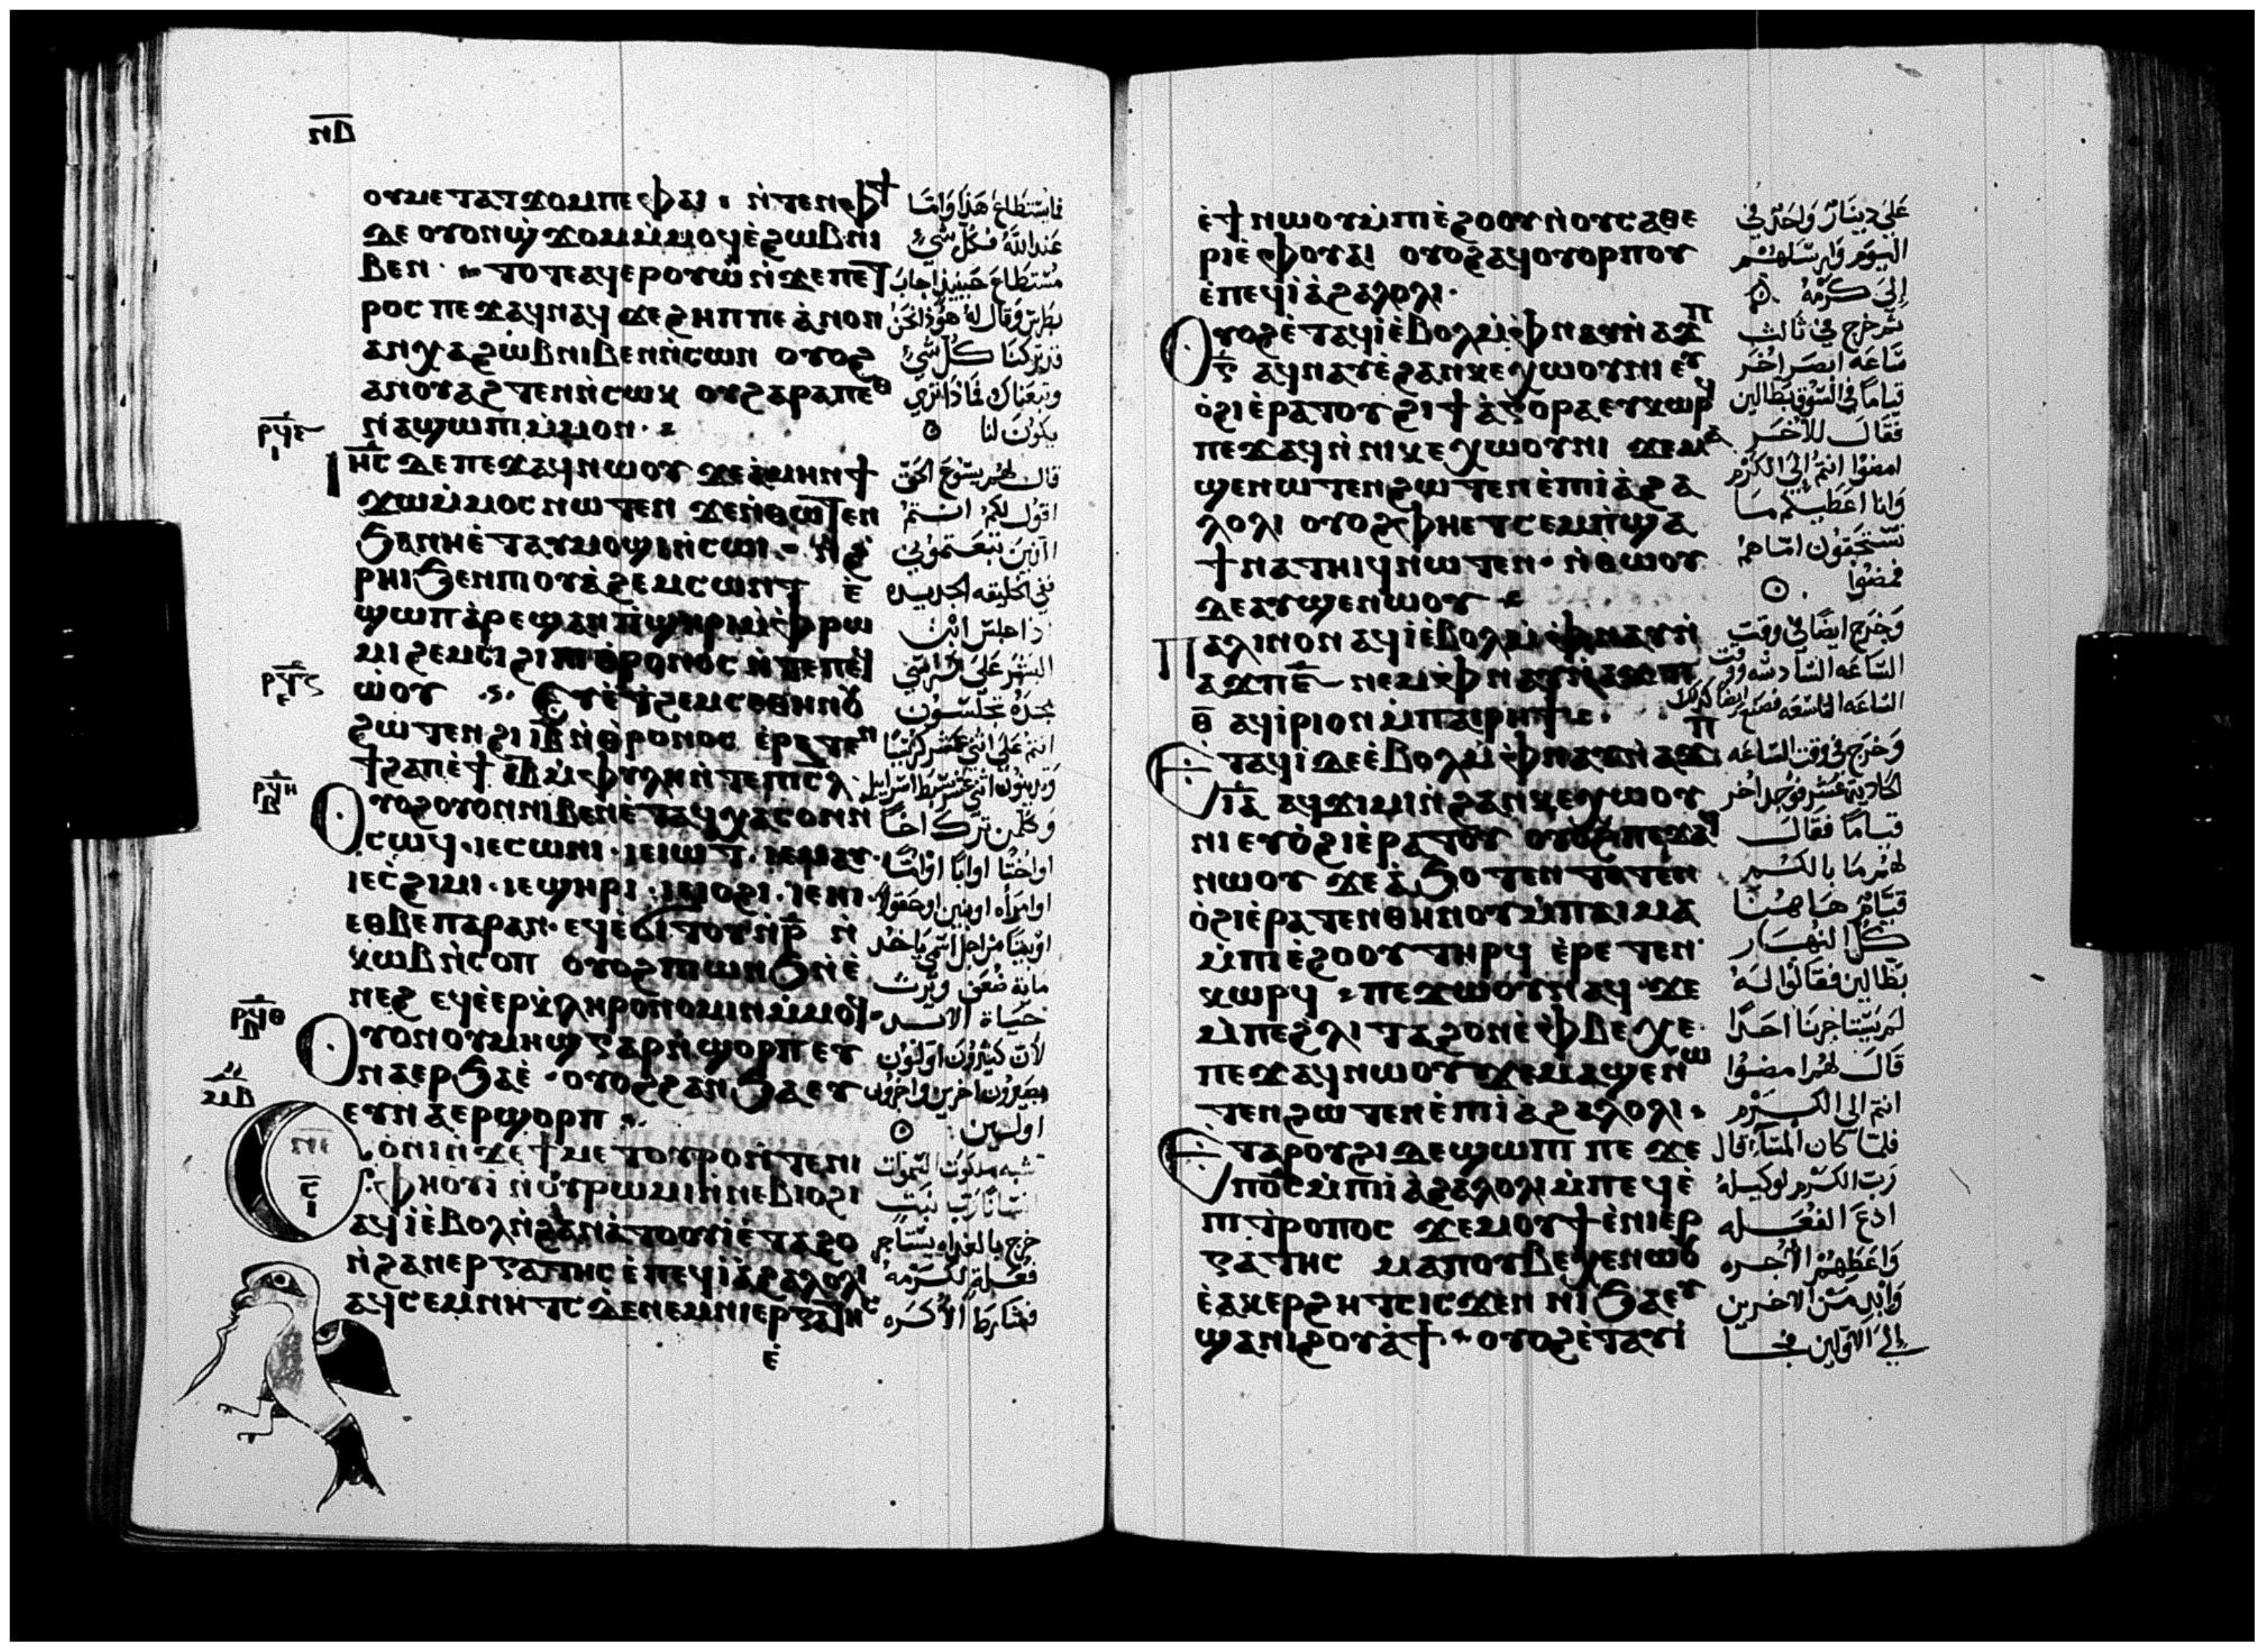 ⲛ̅ⲇ̅
ⲟⲩⲙⲉⲧⲁⲧϫⲟⲙⲡⲉ ⲫⲁⲓ · ⲛ̀ⲧⲉⲛⲫϯ
ⲇⲉ ⲟⲩⲟⲛϣϫⲟⲙⲙ̀ⲙⲟϥⲉ̀ϩⲱⲃⲛⲓ
ⲃⲉⲛ · ⲧⲟⲧⲉⲁϥⲉⲣⲟⲩⲱ̀ ⲛ̀ϫⲉⲡⲉⲧ
ⲣⲟⲥ ⲡⲉϫⲁϥⲛⲁϥ ϫⲉϩⲏⲡⲡⲉ ⲁ̀ⲛⲟⲛ
ⲁⲛⲭⲁϩⲱ̀ⲃⲛⲓⲃⲉⲛⲛ̀ⲥⲱⲛ ⲟⲩⲟϩ
ⲁⲛⲟⲩⲁϩⲧⲉⲛⲛ̀ⲥⲱⲕ ⲟⲩϩⲁⲣⲁⲡⲉⲑ
ⲛⲁϣⲱⲡⲓⲙ̀ⲙⲟⲛ ·
ⲓⲏⲥ ⲇⲉ ⲡⲉϫⲁϥⲛⲱⲟⲩ ϫⲉⲁ̀ⲙⲏⲛϯ
ϫⲱⲙ̀ⲙⲟⲥ ⲛⲱⲧⲉⲛ ϫⲉⲛ̀ⲑⲱⲧⲉⲛ
ϧⲁⲛⲏⲉ̀ⲧⲁⲩⲙⲟϣⲓⲛ̀ⲥⲱⲓ · ⲛ̀ϩ
ⲣⲏⲓϧⲉⲛⲡⲓⲟⲩⲁ̀ϩⲉⲙⲥⲱⲛⲧ ⲉ̀
ϣⲱⲡⲁ̀ⲣⲉϣⲁⲛⲡ̀ϣⲏⲣⲓⲙ̀ⲫⲣⲱ
ⲙⲓ ϩⲉⲙⲥⲓϩⲓⲡⲓⲑⲣⲟⲛⲟⲥ ⲛ̀ⲧⲉⲡⲉϥ
ⲱ̀ⲟⲩ · ⲉⲣⲉⲧⲉⲛⲉ̀ϩⲉⲙⲥⲑⲏⲛⲟⲩ
ϩⲱⲧⲉⲛϩⲓⲓ̅ⲃ̅ⲛ̀ⲑⲣⲟⲛⲟⲥ ⲉ̀ⲣⲉⲧⲉⲛ
ϯϩⲁⲡⲉ̀ϯ ⲓ̅ⲃ̅ⲙ̀ⲫⲩⲗⲏⲛ̀ⲧⲉⲡⲓⲥⲗ
ⲟⲩⲟϩⲟⲩⲟⲛⲛⲓⲃⲉⲛⲉ̀ⲧⲁϥⲭⲁⲥⲟⲛⲛ̀
ⲥⲱϥ · ⲓⲉⲥⲱⲛⲓ · ⲓⲉⲓⲱⲧ · ⲓⲉⲙⲁⲩ ·
ⲓⲉⲥ̀ϩⲓⲙⲓ · ⲓⲉϣⲏⲣⲓ · ⲓⲉⲓⲟϩⲓ · ⲓⲉⲏⲓ ·
ⲉⲑⲃⲉⲡⲁⲣⲁⲛ · ⲉϥⲉ̀ϭⲓⲧⲟⲩⲛ̀ⲣ̅ ⲛ̀
ⲕⲱⲃⲛ̀ⲥⲟⲡ ⲟⲩⲟϩⲡⲓⲱⲛϧⲛ̀ⲉ̀
ⲛⲉϩ ⲉϥⲉⲉⲣⲕ̀ⲗⲏⲣⲟⲛⲟⲙⲓⲛⲙ̀ⲙⲟϥ
ⲟⲩⲟⲛⲟⲩⲙⲏϣ ⲅⲁⲣⲛ̀ϣⲟⲣⲡ ⲉⲩ
ⲛⲁⲉⲣϧⲁⲉ̀ · ⲟⲩⲟϩϩⲁⲛϧⲁⲉⲩ
ⲉⲩⲛⲁⲉⲣϣⲟⲣⲡ
ⲥⲟ̀ⲛⲓⲛ̀ϫⲉϯⲙⲉⲧⲟⲩⲣⲟⲛ̀ⲧⲉⲛⲓ
ⲫⲏⲟⲩⲓ̀ ⲛ̀ⲟⲩⲣⲱⲙⲓⲛ̀ⲛⲉⲃⲓⲟϩⲓ
ⲁϥⲓ̀ⲉ̀ⲃⲟⲗⲛ̀ϩⲁⲛⲁ̀ⲧⲟⲟⲩⲓⲉ̀ⲧⲁϩⲟ
ⲛ̀ϩⲁⲛⲉⲣⲅⲁⲧⲏⲥ ⲉ̀ⲡⲉϥⲓⲁ̀ϩⲁⲗⲟⲗⲓ
ⲁϥⲥⲉⲙⲛⲏⲧⲥ ⲇⲉⲛⲉⲙⲛⲓⲉⲣⲅⲁⲧⲏⲥ
ⲉ̀
فما يستطاع هذا واما
عند الله فكل شيء
مستطاع حينيذ اجاب
بطرس وقال له هوذا نحن
قد تركنا كل شيء
وتبعناك فماذا تري
يكون لنا
قال لهم يسوع الحق
اقول لكم انتم
الذين تبعتموني
في الخليقه الجديده
اذا جلس ابن
البشر علي كرسي
مجده تجلسون
انتم علي اثني عشر كرسيا
وتدينون اثني عشر سبط اسراييل
وكلمن ترك اخا
او اختا او ابا او اما
او امراه او بنين او حقولا
او بيتا من اجل اسمي ياخذ
مايه ضعف ويرث
حياة الابد
لان كثيرون اولون
يصيرون اخرين واخرون
اولين
شبه ملكوت السموات
انسانا رب بيت
خرج بالغداه يستاجر
فعله لكرمه
فشارط الاكره
ⲉ̀ϯⲛⲱⲟⲩⲙ̀ⲡⲓⲉ̀ϩⲟⲟⲩⲛ̀ⲟⲩⲥⲁⲑⲉ
ⲣⲓⲉ̀ ⲫⲟⲩⲁⲓ ⲟⲩⲟϩⲁϥⲟⲩⲟⲣⲡⲟⲩ
ⲉ̀ⲡⲉϥⲓⲁ̀ϩⲁⲗⲟⲗⲓ ·
ⲟⲩⲟϩⲉ̀ⲧⲁϥⲓ̀ⲉ̀ⲃⲟⲗⲙ̀ⲫⲛⲁⲩⲛ̀ⲁϫⲡ
ⲅ̅ ⲁϥⲛⲁⲩⲉ̀ϩⲁⲛⲕⲉⲭⲱⲟⲩⲛⲓ ⲉⲩ
ⲟ̀ϩⲓⲉ̀ⲣⲁⲧⲟⲩ ϩⲓϯⲁ̀ⲅⲟⲣⲁ ⲉⲩⲕⲱⲣϥ
ⲡⲉϫⲁϥⲛ̀ⲛⲓⲕⲉⲭⲱⲟⲩⲛⲓ ϫⲉⲙⲁ
ϣⲉⲛⲱⲧⲉⲛϩⲱⲧⲉⲛⲉ̀ⲡⲓⲁ̀ϩⲁ
ⲗⲟⲗⲓ ⲟⲩⲟϩⲫⲏⲉⲧⲥⲉⲙⲡ̀ϣⲁ
ϯⲛⲁⲧⲏⲓϥⲛⲱⲧⲉⲛ · ⲛ̀ⲑⲱⲟⲩ
ⲇⲉⲁⲩϣⲉⲛⲱⲟⲩ
ⲡⲁⲗⲓⲛⲟⲛ ⲁϥⲓ̀ⲉ̀ⲃⲟⲗⲙ̀ⲫⲛⲁⲩⲛ̀
ⲁϫⲡⲋ̅ ⲛⲉⲙⲫⲛⲁⲩⲛ̀ⲁϫⲡ
ⲑ̅ ⲁϥⲓ̀ⲣⲓⲟⲛⲙ̀ⲡⲁⲓⲣⲏϯ ·
ⲉⲧⲁϥⲓ̀ⲇⲉⲉ̀ⲃⲟⲗⲙ̀ⲫⲛⲁⲩⲛ̀ⲁϫⲡ
ⲓ̅ⲁ̅ ⲁϥϫⲓⲙⲓⲛ̀ϩⲁⲛⲕⲉⲭⲱⲟⲩ
ⲛⲓ ⲉⲩⲟ̀ϩⲓⲉ̀ⲣⲁⲧⲟⲩ ⲟⲩⲟϩⲡⲉϫⲁϥ
ⲛⲱⲟⲩ ϫⲉⲁ̀ϧⲟⲧⲉⲛⲧⲉⲧⲉⲛ
ⲟ̀ϩⲓⲉ̀ⲣⲁⲧⲉⲛⲑⲏⲛⲟⲩⲙ̀ⲡⲁⲓⲙⲁ
ⲙ̀ⲡⲓⲉ̀ϩⲟⲟⲩⲧⲏⲣϥ ⲉ̀ⲣⲉⲧⲉⲛ
ⲕⲱⲣϥ ⲡⲉϫⲱⲟⲩⲛⲁϥ ϫⲉ
ⲙ̀ⲡⲉϩ̀ⲗⲓ ⲧⲁϩⲟⲛⲉ̀ⲫⲃⲉⲭⲉ
ⲡⲉϫⲁϥⲛⲱⲟⲩ ϫⲉⲙⲁϣⲉⲛⲱ
ⲧⲉⲛϩⲱⲧⲉⲛⲉ̀ⲡⲓⲁ̀ϩⲁⲗⲟⲗⲓ ·
ⲉⲧⲁⲣⲟⲩϩⲓ ⲇⲉϣⲱⲡⲓ ⲡⲉϫⲉ
ⲡⲟ̅ⲥ̅ⲙ̀ⲡⲓⲁ̀ϩⲁⲗⲟⲗⲓ ⲙ̀ⲡⲉϥⲉ̀
ⲡⲓⲧⲣⲟⲡⲟⲥ ϫⲉⲙⲟⲩϯⲉ̀ⲛⲓⲉⲣ
ⲅⲁⲧⲏⲥ ⲙⲁⲡⲟⲩⲃⲉⲭⲉⲛⲱⲟⲩ
ⲉ̀ⲁⲕⲉⲣϩⲏⲧⲥⲓⲥϫⲉⲛ ⲛⲓϧⲁⲉⲩ
ϣⲁⲛⲓϩⲟⲩⲁ̀ϯ · ⲟⲩⲟϩⲉ̀ⲧⲁⲩⲓ̀
علي دينار واحد في
اليوم وارسلهم
الي كرمه
ثم خرج في ثالث
ساعه ابصر اخر
قياما في السوق بطالين
فقال للاخر
امضوا انتم الي الكرم
وانا اعطيكم ما
تستحقون اما هم
فمضوا
وخرج ايضا في وقت
الساعه السادسه ووقت
الساعه التاسعه فصنع ايضا كذلك
وخرج في وقت الساعه
الحاديه عشر فوجد اخر
قياما فقال
لهم ما بالكم
قيام هاهنا
كل النهار
بطالين فقالوا له
لم يستاجرنا احدا
قال لهم امضوا
انتم الي الكرم
فلما كان المسا قال
رب الكرم لوكيله
ادع الفعله
واعطهم الاجره
وابد من الاخرين
الي الاولين فجا